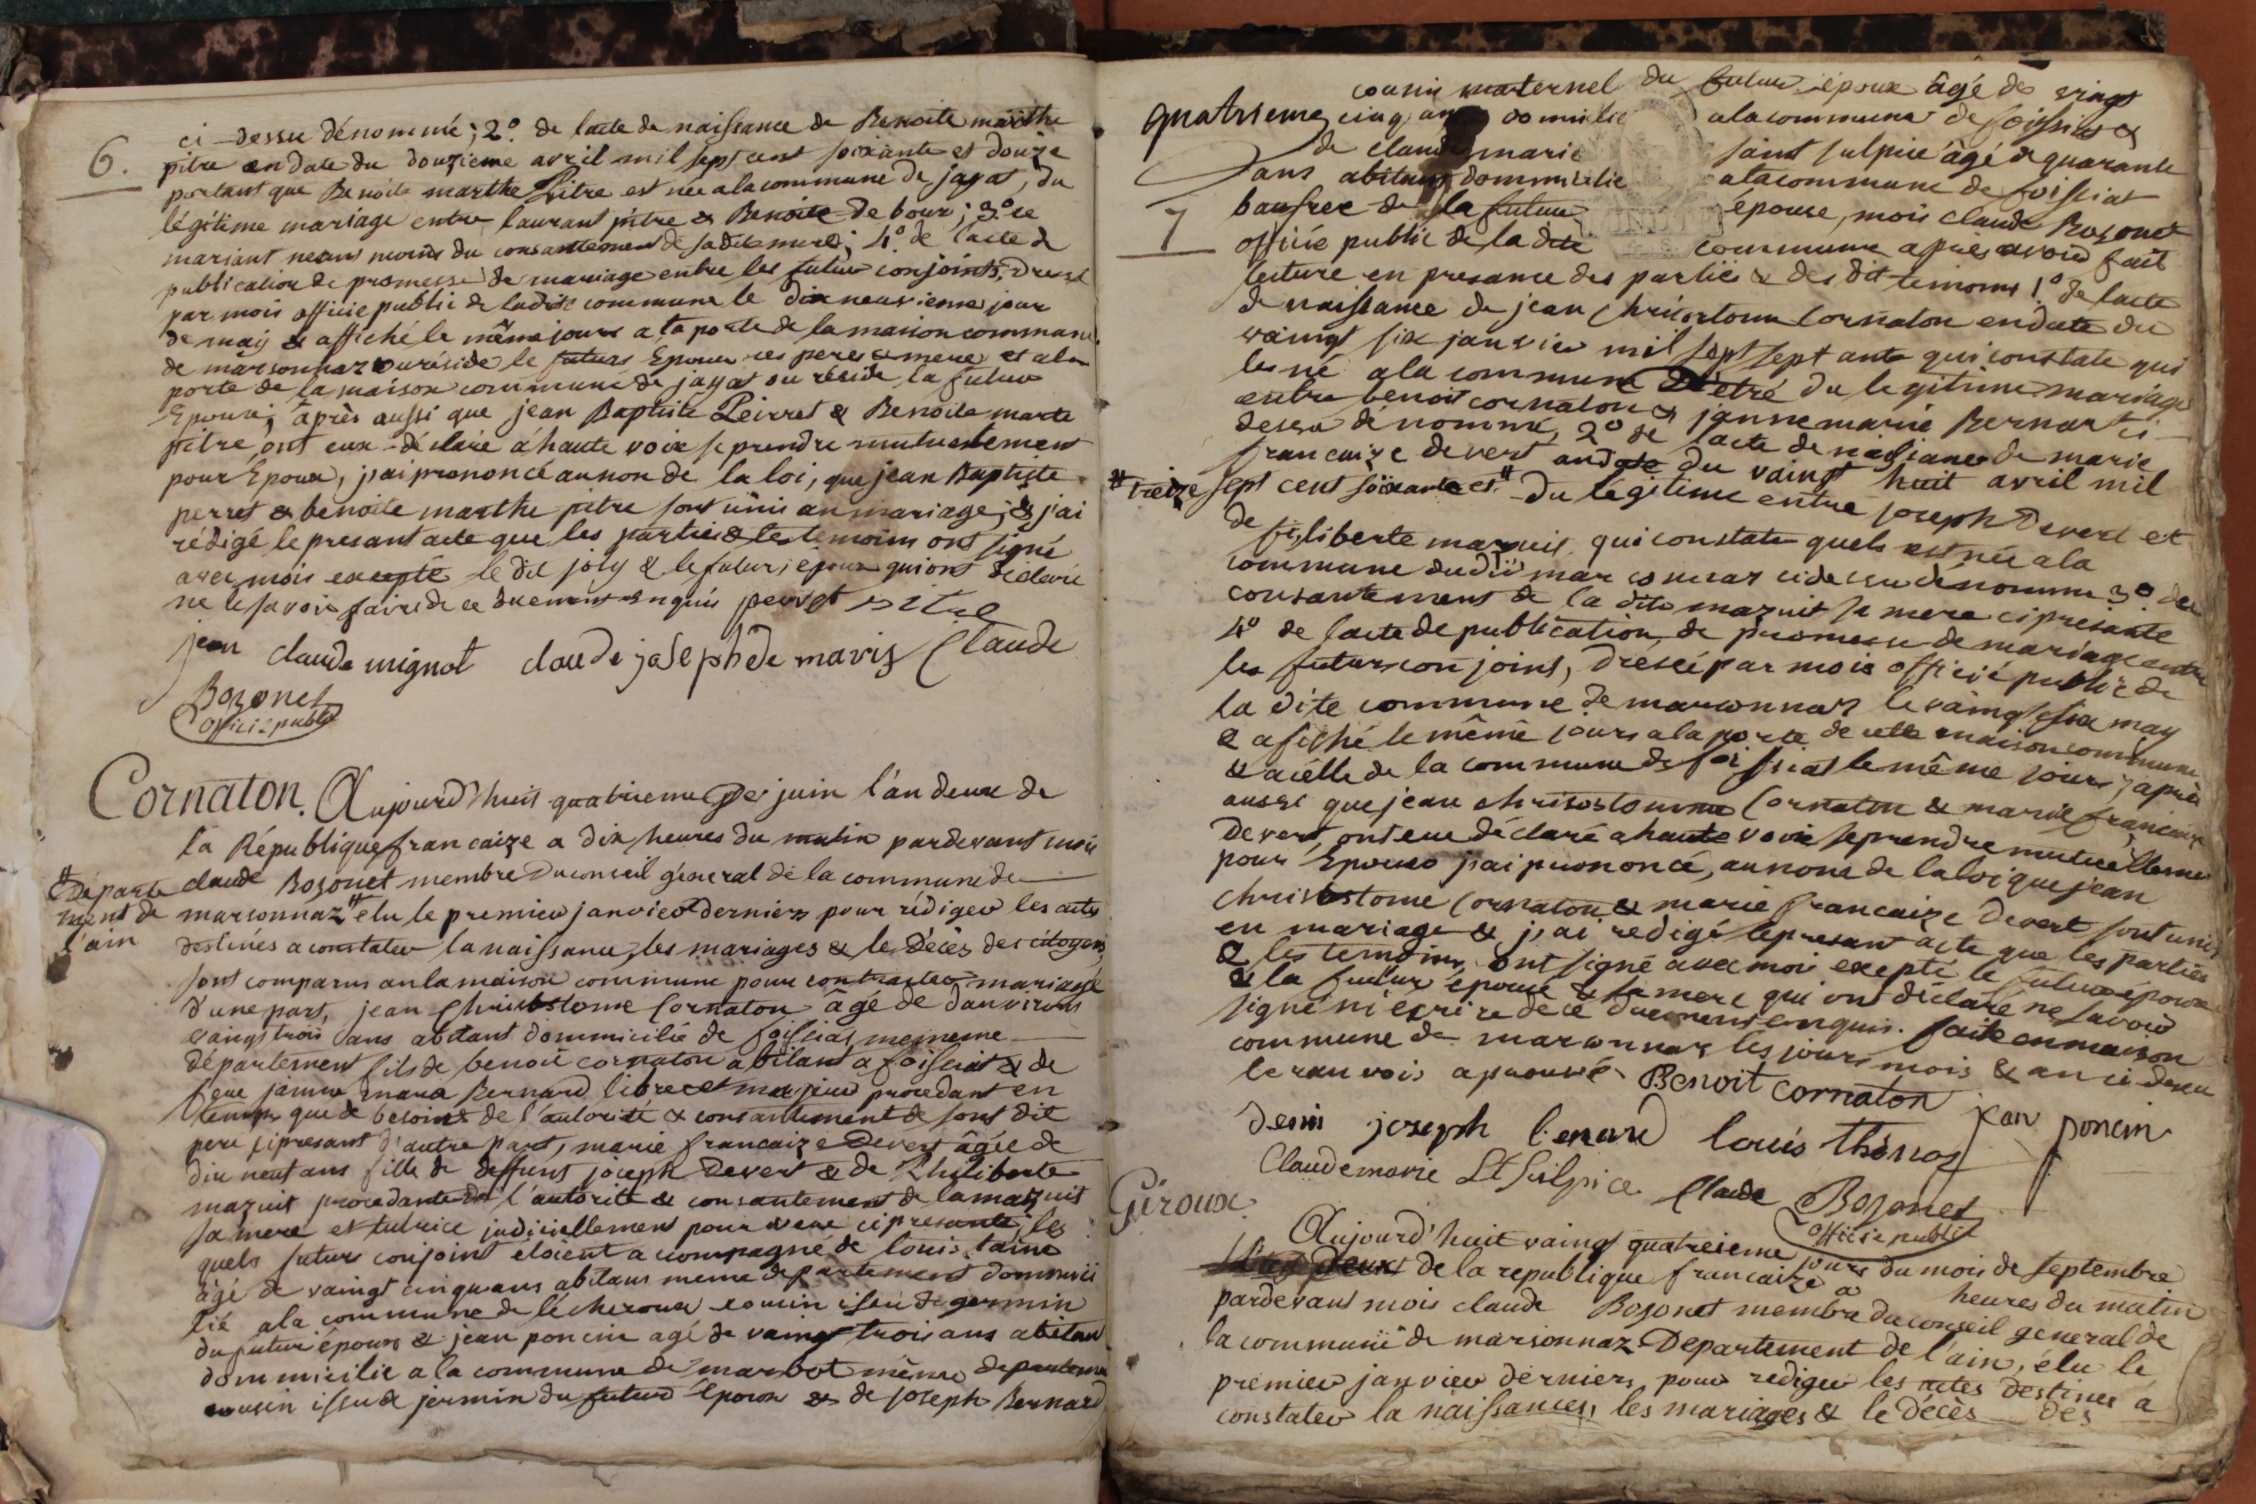 6.
ci dessu dénommé ; 2.º de lacte de naissance de Benoite marthe
pitre en date du douzieme avril mil sept cent soixante et douze
portant que Benoite marthe Pitre est née a la commune de jayat, du
légitime mariage entre laurant pitre & Benoite De bour ; 3.º ce
mariant neans moins du consantement de sa dite mere ; 4.º de lacte de
publication de promesse de mariage entre les futur conjoints, dressé
par mois officié public de ladite commune le dix neuvieme jour
de may & affiché le même jours a la porte de la maison commune
de marsonnaz ou réside le futurs Epoux ses peres & mere et a la
porte de la maison commune de jayat ou réside la futur
Epouse ; après aussi que jean Baptiste Peirret & Benoite marte
pitre ont eux déclaré a haute voix se prendre mutuelement
pour Epoux, j'ai prononcé au non de la loi, que jean Baptiste
perret & benoite marthe pitre sont unis an mariage ; & j'ai
rédigé le presant acte que les partie & les temoins ont signé
avec mois excepté le dit joly & le futur épouse qui ont déclaré
ne le savoir faire de ce duement enquis perret pitre
jean claude mignot claude joseph de mavis Claude
Bozonet
officié public
Cornaton. Aujourd'huit quatrieme de juin l'an deux de
la République francaize a dix heures du matin pardevant moi
claude Bozonet membre du conseil géneral de la commune de
# Departe
ment de
l'ain
marsonnaz # élu le premier janvier dernier pour rédiger les actes
destinés a constater la naissance, les mariages & le Décès des citoyens
sont comparus an la maison commune pour contracter mariage
d'une part, jean Chrisostome Cornaton âgé de d'anvirons
vaingt trois ans abitant dommicilié de foissiat meimeme
département fils de benoit cornaton abitant a foissiat & de
feue janne maria Bernard libre et majeur procedant en
temps que de besoint de l'autorité & consantement de sont dit
pere cipresant d'autre part, marie francaize Devert âgée de
dix neuf ans fille de deffunt joseph Devert & de Philiberte
mazuit procedante de l'autorité & consantement de la mazuit
sa mere et tutrice judiciellement pour veue cipresante ; les
quels futurs conjoint étoient acompagné de louis taine
âgé de vaingt cinq ans abitans meme departement dommici
lié a la commune de lécheroux cousin issu de germin
du futur épours & jean poncin agé de vaingt trois ans abitan
dommicilié a la commune de marbot même departeme
cousin issu de jermin du futur Epoux & de joseph Bernard
quatrieme
7
cousin maternel du futur époux âgé de vingt
cinq ans domicilié a la commune de foissiat &
de claude marie saint sulpice âgé de quarante
ans abitant dommicilié a la commune de foissiat
baufrere de la future epouse, mois claude Bozonet
officié public de la dite commune apres avoir fait
lecture en presance des partiés & des dit temoins 1.º de lacte
de naissance de jean Chrisostome Cornaton en date du
vaingt six janvier mil sept sept ante qui constate qui
les né a la commune d'étré du legitime mariage
entre benoit cornaton & janne marie Bernart ci
dessu dénommé, 2º de lacte de naissance de marie
francaize devert an date du vaingt huit avril mil
# treize
sept cent soixante et # du légitime entre joseph Devert et
de filiberte mazuit qui constate quels est née a la
commune dudit marsonnaz ci dessu dénomme 3º de
consantement de la dite mazuit sa mere ci présante
4º de lacte de publication, de promesse de mariage entre
les futurs conjoins, dressé par mois officié public de
la dite commune de marsonnaz le vaingt six may
& afiché le même jours a la porte de cette maison commune
& a celle de la commune de foissiat le même jours, après
aussi que jean chrisostomme Cornaton & marie francaize
devert, ont eux déclaré a haute voix se prendre mutuellement
pour Epoux j'ai prononcé, au nom de la loi que jean
Chrisostome Cornaton & marie francaize Devert sont unis
en mariage & j'ai rédigé le presant acte que les partiés
& les temoins ont signé avec moi excepté le futur époux
& la futur épouse & sa mere qui ont déclaré ne savoir
signé ni ecrire de ce duement enquis. fait en maison
commune de marsonnaz les jours mois & an ci dessu
le ranvois aprouvé Benoit Cornaton
joseph bernard louis Thénoz jean poncin
Claudemarie St Sulpice Claude Bozonet
officié public
Giroux
Aujourd'huit vaingt quatreieme jours du mois de septembre
l'an deux de la republique francaize a heures du matin
pardevant mois claude Bozonet membre du conseil general de
la commune de marsonnaz Departement de l'ain, élu le
premier janvier derniers, pour rediger les actes destinés a
constater la naissances, les mariages & le décès des